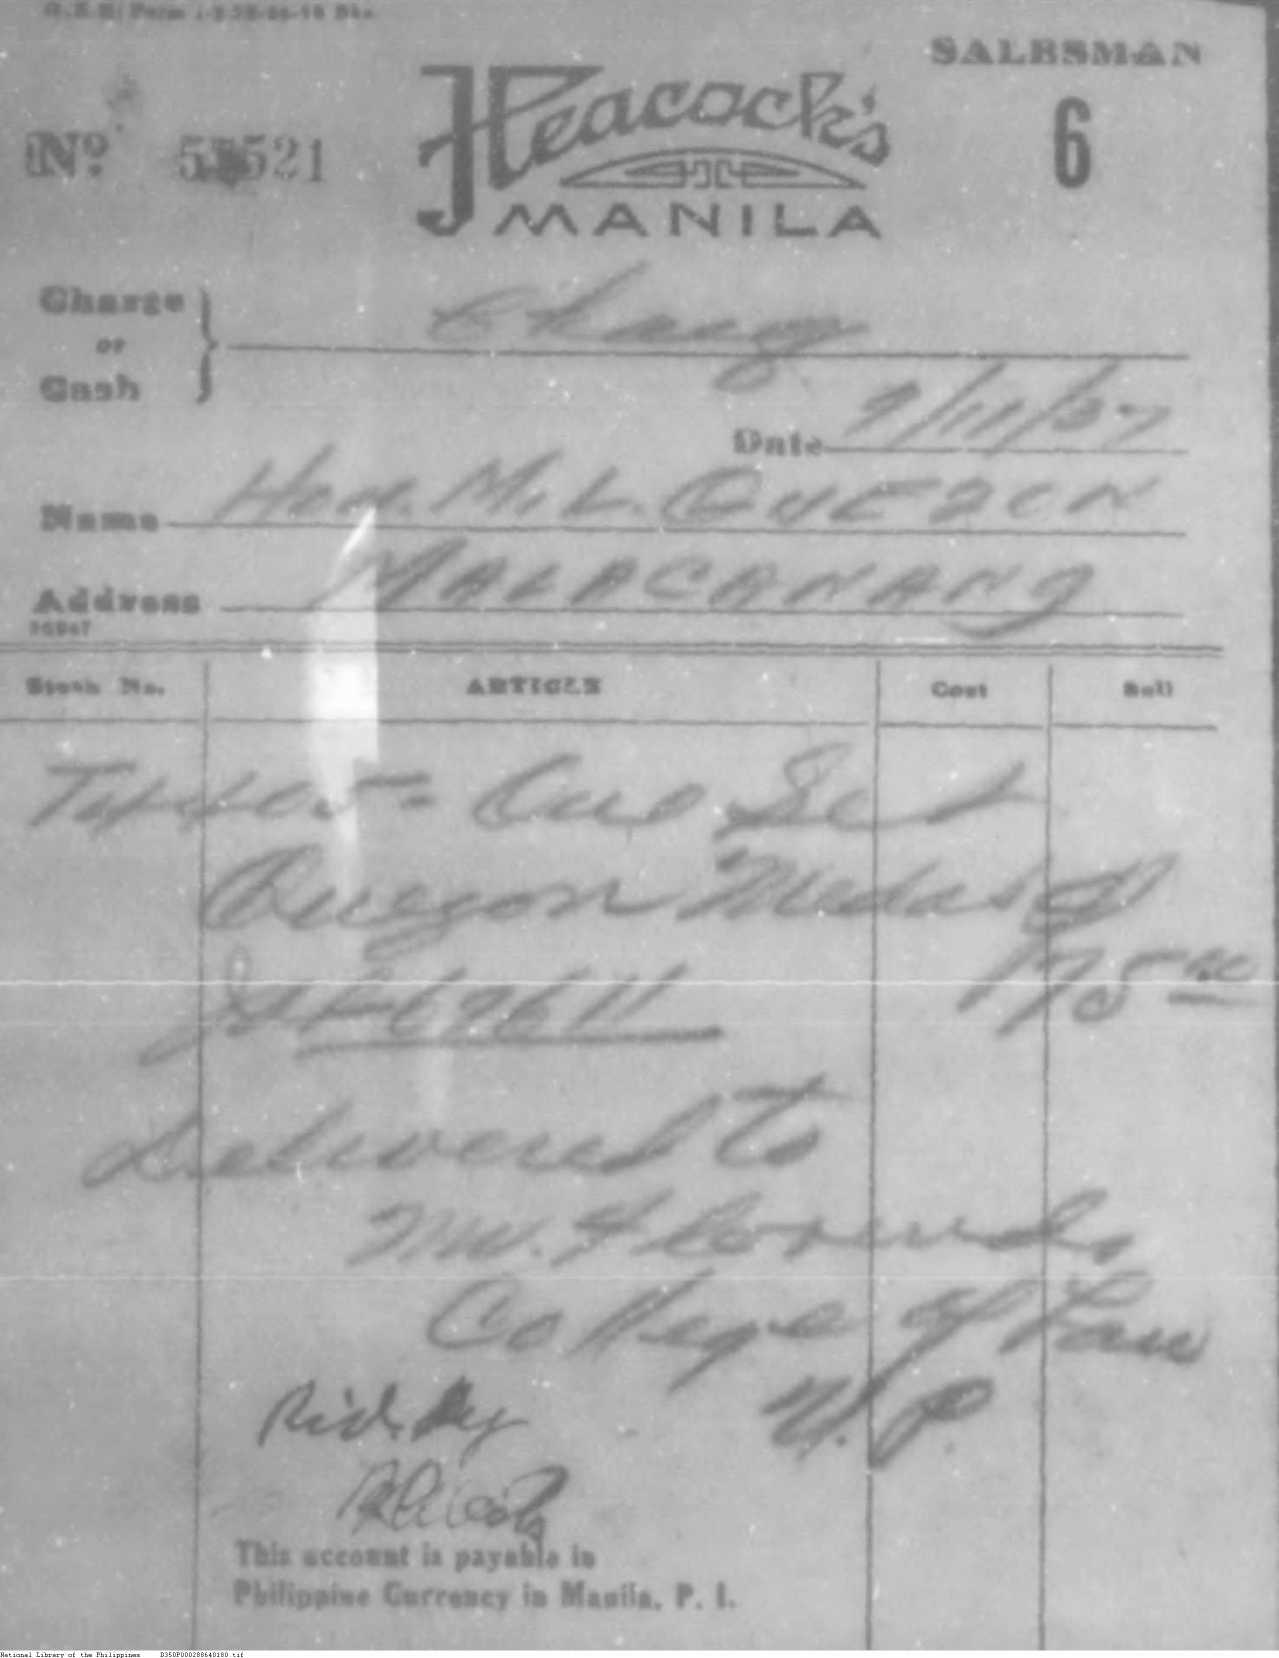 SALESMAN
Heacock's
No. 521
6
MANILA
Charge
or
Cash
Charge
Date 9/11/37
Name Hon. M. L. QUEZON
Address MALACANANG
Stock No. ARTICLE Cost Sell
One Set
Quezon Medas
175.00
Delivered to
Mr. Florendo
College of Law
U.P.
Rec'd by
This account is payable in
Philippine Currency in Manila, P. I.
National Library of the Philippines